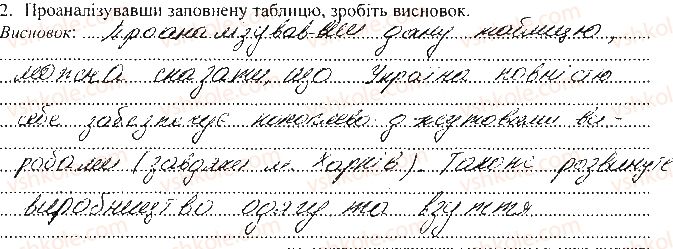 2. Проаналізувавши заповнену таблицю, зробіть висновок.
Висновок: Проаналізував-вши дану таблицю,
можна сказати, що Україна повністю
себе забезпечує пеньково джутовими ви-
робами (завдяки м. Харків). Також розвинуте
виробництво одягу та взуття